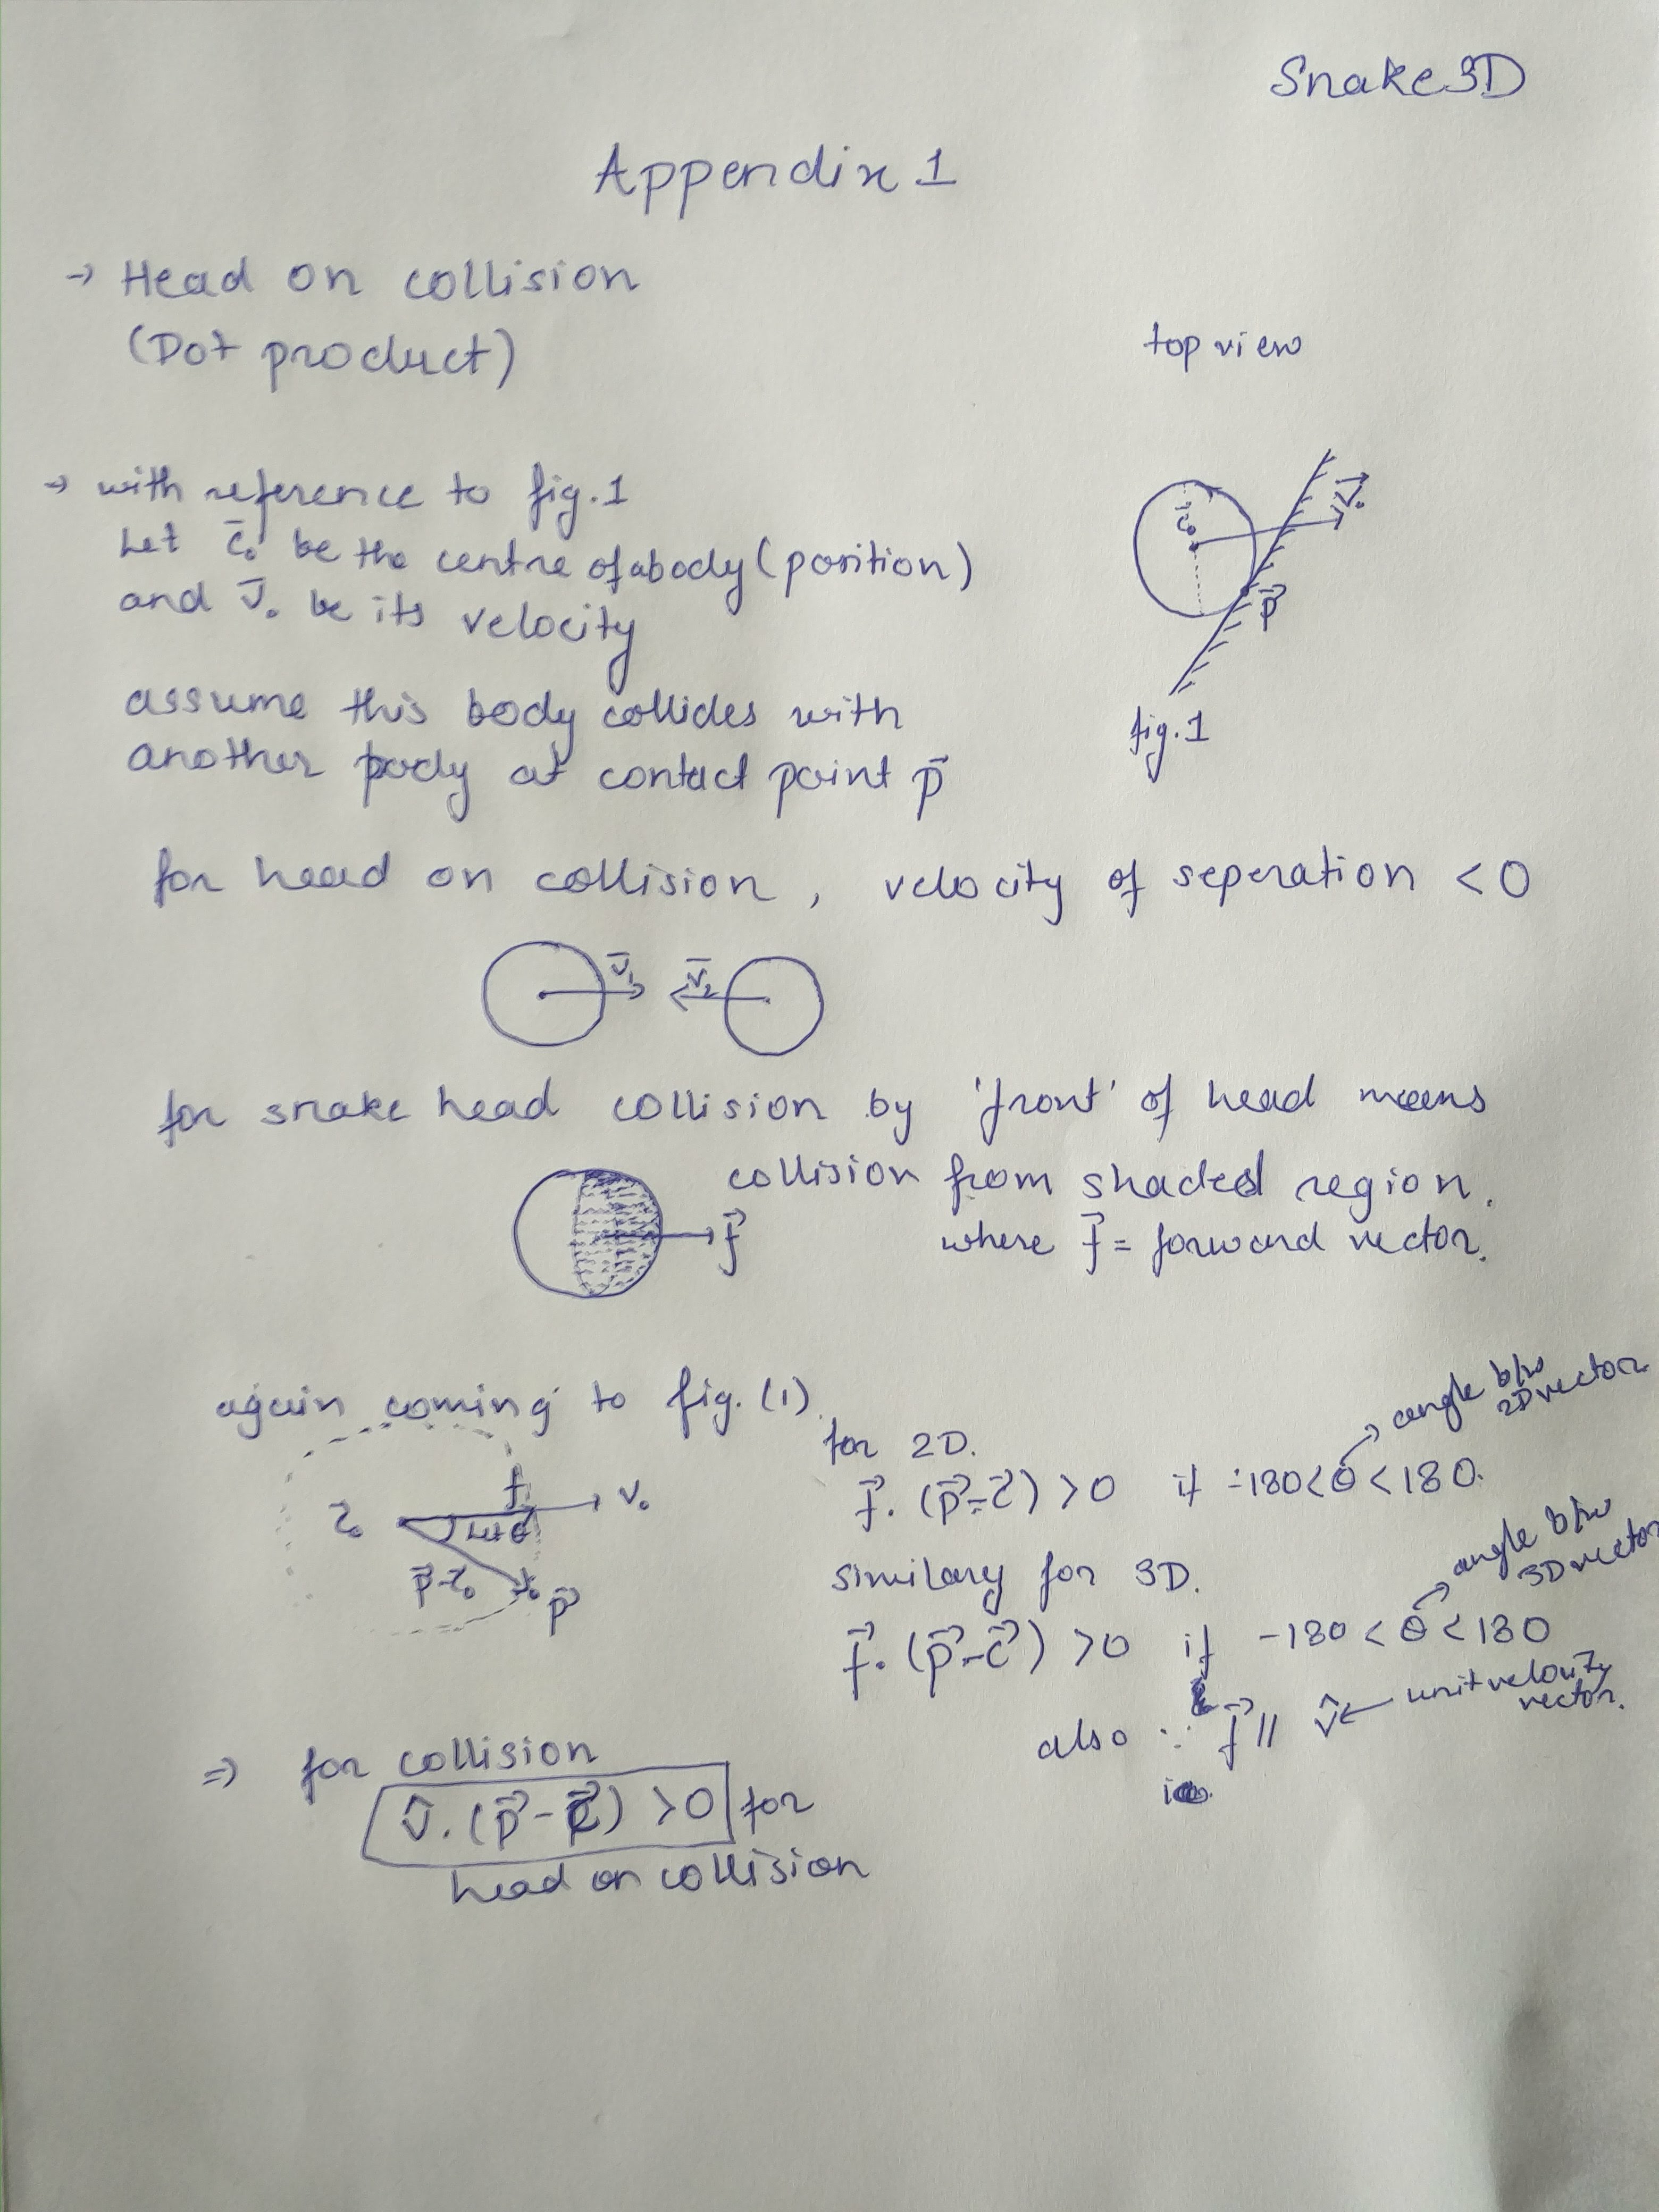 Snake3D
Appendix 1
→ Head on collision
(Dot product)
top view
→ with reference to fig.1
Let c̄₀ be the centre of a body (position)
and v̄₀ be its velocity
c̄₀
v⃗₀
p⃗
fig.1
assume this body collides with
another body at contact point p⃗
for head on collision, velocity of seperation < 0
v̄₁ v̄₂
for snake head collision by 'front' of head means
collision from shaded region.
f⃗
where f⃗ = forward vector.
again coming to fig. (1).
for 2D.
angle b/w
2D vector
f⃗. (p⃗-c⃗) > 0 if -180<θ<180.
c̄₀ f v₀
let θ
p⃗-c̄₀
p⃗
similary for 3D.
angle b/w
3D vector
f⃗. (p⃗-c⃗) > 0 if -180<θ<180
also ∵ f⃗ // v̂ ← unit velocity
vector.
⇒ for collision
v̂. (p⃗-c⃗) > 0 for
head on collision